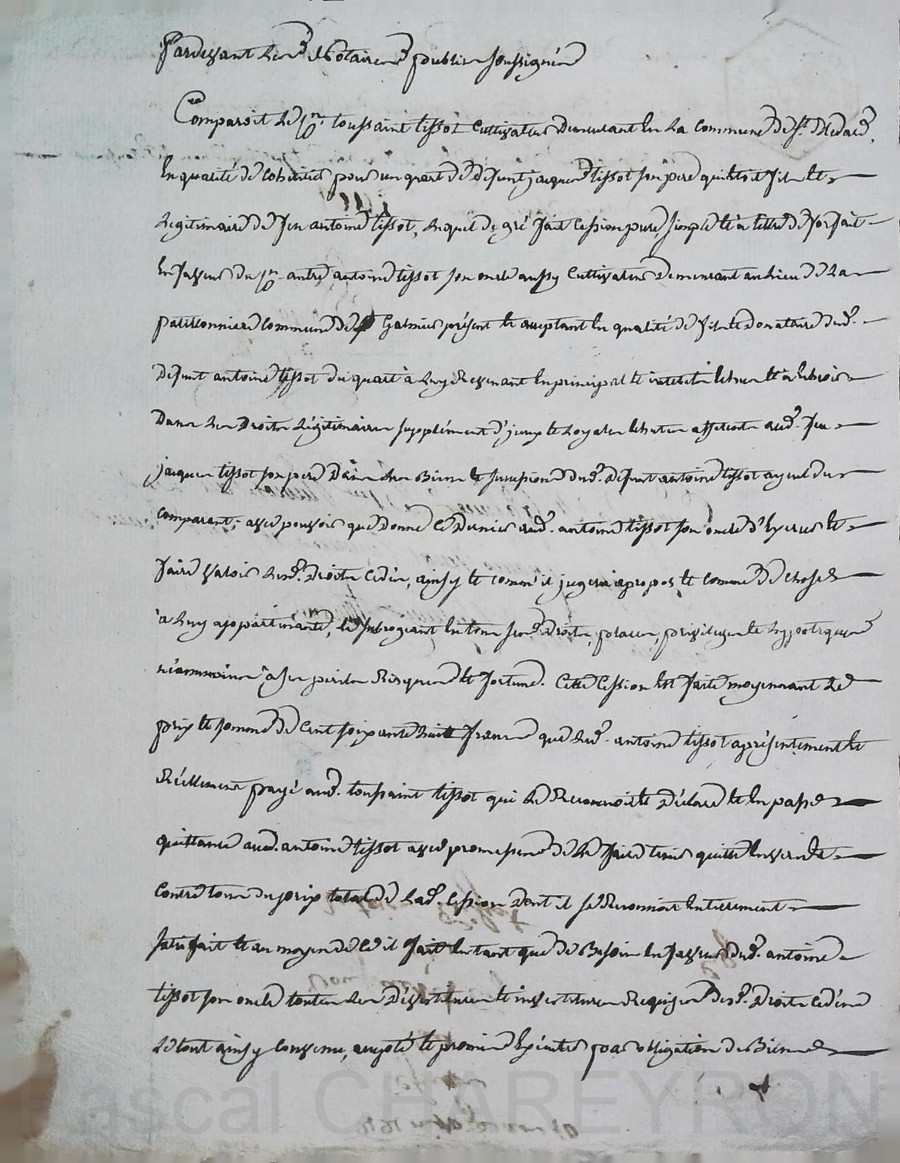 Pardevant Les Notaires publics soussignés
Comparoit Le Sr. toussaint tissot Cultivateur Demeurant En La Commune De St. Medard,
En qualité de Cohéritier pour un quart de Défunt jacques tissot son pere qui étoit fils et
Légitimaire de feu antoine tissot, Lequel de gré fait Cession pure, simple et à titre de forfait
En faveur du Sr. autre antoine tissot son oncle aussy Cultivateur Demeurant au Lieu De La
commune de St Galmier présent et acceptant En qualité de fils et Donataire dud.
Defunt antoine tissot du quart à Luy Revenant En principal et interets Echus et à Echoir
Dans Les Droits Légitimaires supplément d'iceux et Loyaux afferants aud. feu
jacques tissot son pere Dans Les Biens et succession dud. défunt antoine tissot ayeul du
comparant; avec pouvoir que donne Ce Dernier aud. antoine tissot son oncle d'Exercer et
faire valoir Lesd. Droits Cédés, ainsy et comme il jugera apropos et comme De Chose
à Luy appartenante, Le subrogeant En tous sesd. Droits, places, privileges et hypotheques
néanmoins à ses perils Risques et fortune. Cette Cession Est faite moyennant Le
prix et somme de Cent soixante huit francs que Led. antoine tissot a présentement et
Réellement payé aud. toussaint tissot qui Le Reconnoit et Déclare et En passe
quittance aud. antoine tissot avec promesse de Le faire tenir quitte Envers et
Contre tous du prix total de Lad. Cession Dont il se Reconnoit Entierement
satisfait et au moyen de Ce il fait En tant que de Besoin En faveur dud. antoine
tissot son oncle toutes Les Dévestitures et investitures Requises Desd. Droits Cédés
Le tout ainsy Convenu, accepté et promis Exécuter par obligation de Biens
Pascal CHAREYRON